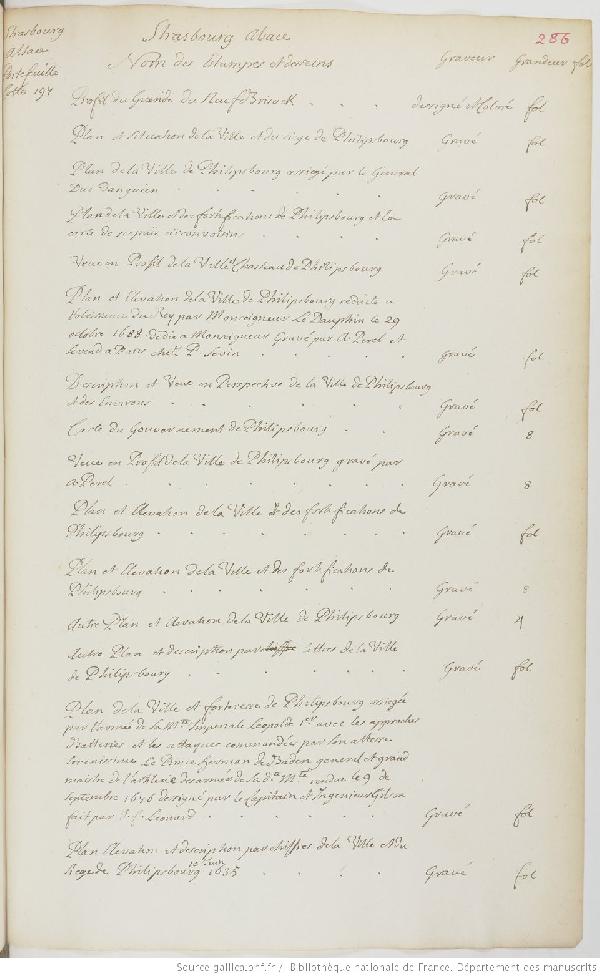 Strasbourg
Alsace
Portefeuille
Cotté 194
Strasbourg Alsace
286
Nom des Estampes et desseins
Graveur
Grandeur fol
Profil du Grande du Neuf Brisack . . . dessigné fol
Plan et situation de la Ville et du siege de Philipsbourg Gravé fol
Plan de la Ville de Philipsbourg assiegé par le General
Duc Danguien Gravé fol
Plan de la Ville et des fortifications de Philipsbourg et la
carte de circonvoisins Gravé fol
Veue en Profil de la Ville et Chasteau de Philipsbourg Gravé fol
Plan et Elevation de la Ville de Philipsbourg reduite a
l'obeissance du Roy par Monseigneur Le Dauphin le 29
octobre 1688 dedié a Monseigneur Gravé par A Perel et
se vend a Paris chez P. Sevin Gravé fol
Description et Veue en Perspective de la Ville de Philipsbourg
et des Environs Gravé fol
Carte du Gouvernement de Philipsbourg Gravé 8
Veue en Profil de la Ville de Philipsbourg gravé par
A Perel Gravé 8
Plan et Elevation de la Ville & des fortifications de
Philipsbourg Gravé fol
Plan et Elevation de la Ville et des fortifications de
Philipsbourg Gravé 8
Autre Plan et elevation de la Ville de Philipsbourg Gravé 4
Autre Plan et description par lettres de la Ville
de Philipsbourg Gravé fol
Plan de la Ville et forteresse de Philipsbourg assiegée
par l'armée de la Mté Imperiale Leopold 1er avec les approches
et batteries et les attaques commandées par son altesse
serenissime Le Prince Herman de Baden general et grand
maistre de l'artilerie des armées de sa de Mté rendue le 9 de
septembre 1676 designé par le Capitain et Ingenieur
fait par Leonard Gravé fol
Plan Elevation et description par chiffres de la Ville et du
siege de Philipsbourg 1635 Gravé fol
Source gallica.bnf.fr / Bibliothèque nationale de France. Département des manuscrits